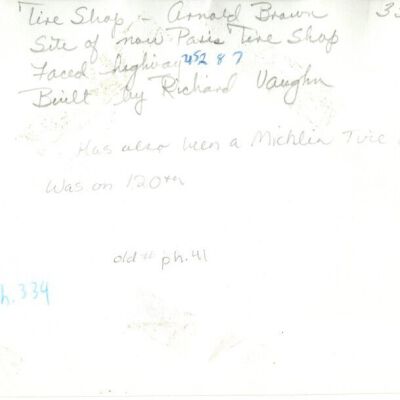 Tire Shop - Arnold Brown 33
Site of now Paris Tire Shop
Faced highway 452 87
Built by Richard Vaughn
Has also been a Michlin Tire
Was on 120th
old # ph.41
h.334